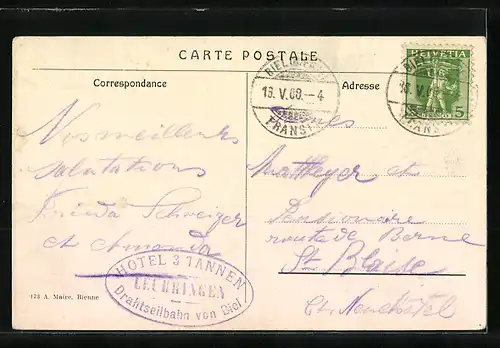 CARTE POSTALE
Correspondance
Adresse
HELVETIA
5
BIEL
13. V. 08. – 4
TRANSIT
Nos meilleures
salutations
Frieda Schweizer
et Amanda
HOTEL 3 TANNEN
LEUBRINGEN
Drahtseilbahn von Biel
123 A. Maire, Bienne
Pensionnaire
route de Berne
St. Blaise
Ct. Neuchâtel